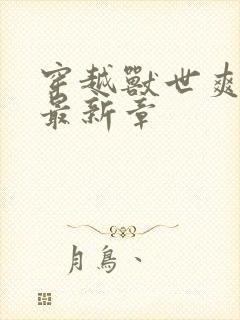 穿越獸世爽
最新章
月鳥、